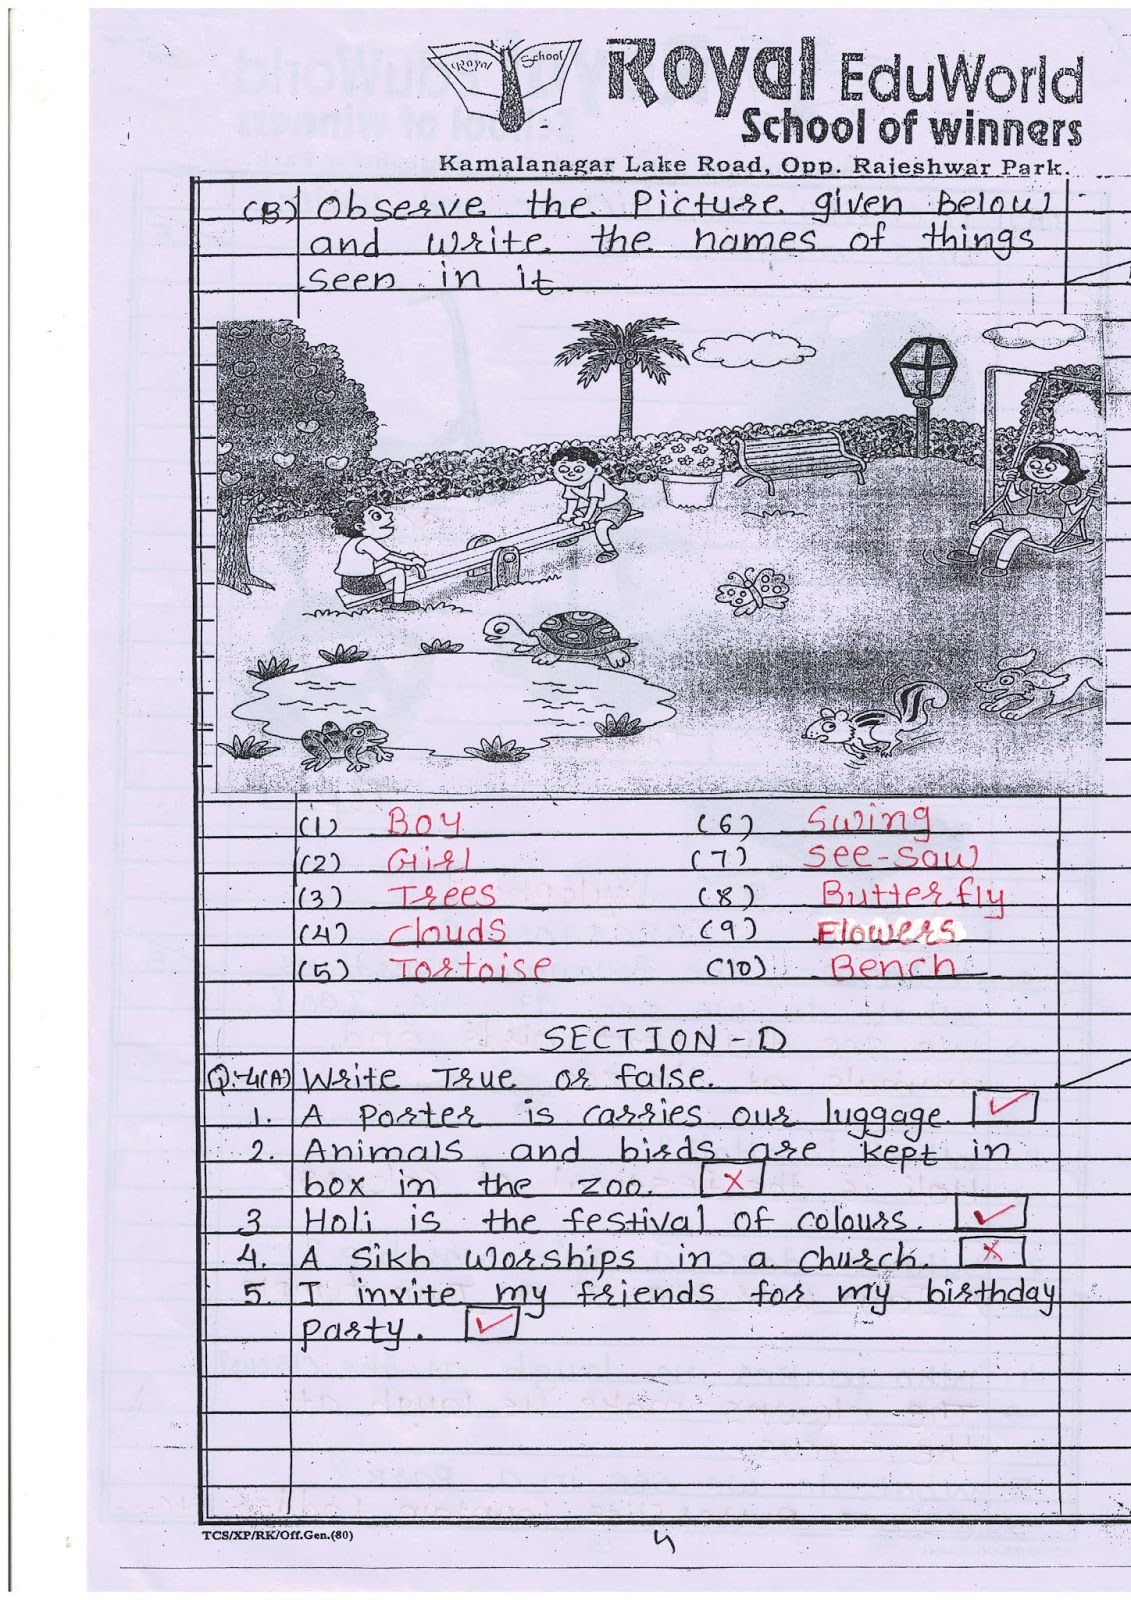 Royal School
Royal EduWorld
School of winners
Kamalanagar Lake Road, Opp. Rajeshwar Park.
(B) Observe the Picture given Below
and write the names of things
seen in it.
(1) Boy (6) Swing
(2) Girl (7) See-saw
(3) Trees (8) Butterfly
(4) Clouds (9) Flowers
(5) Tortoise (10) Bench
SECTION - D
Q:-4(A) Write True or false.
1. A Porter is carries our luggage. ✓
2. Animals and birds are kept in
box in the zoo. ×
3 Holi is the festival of colours. ✓
4. A Sikh worships in a church. ×
5. I invite my friends for my birthday
Party. ✓
TCS/XP/RK/Off.Gen.(80)
4